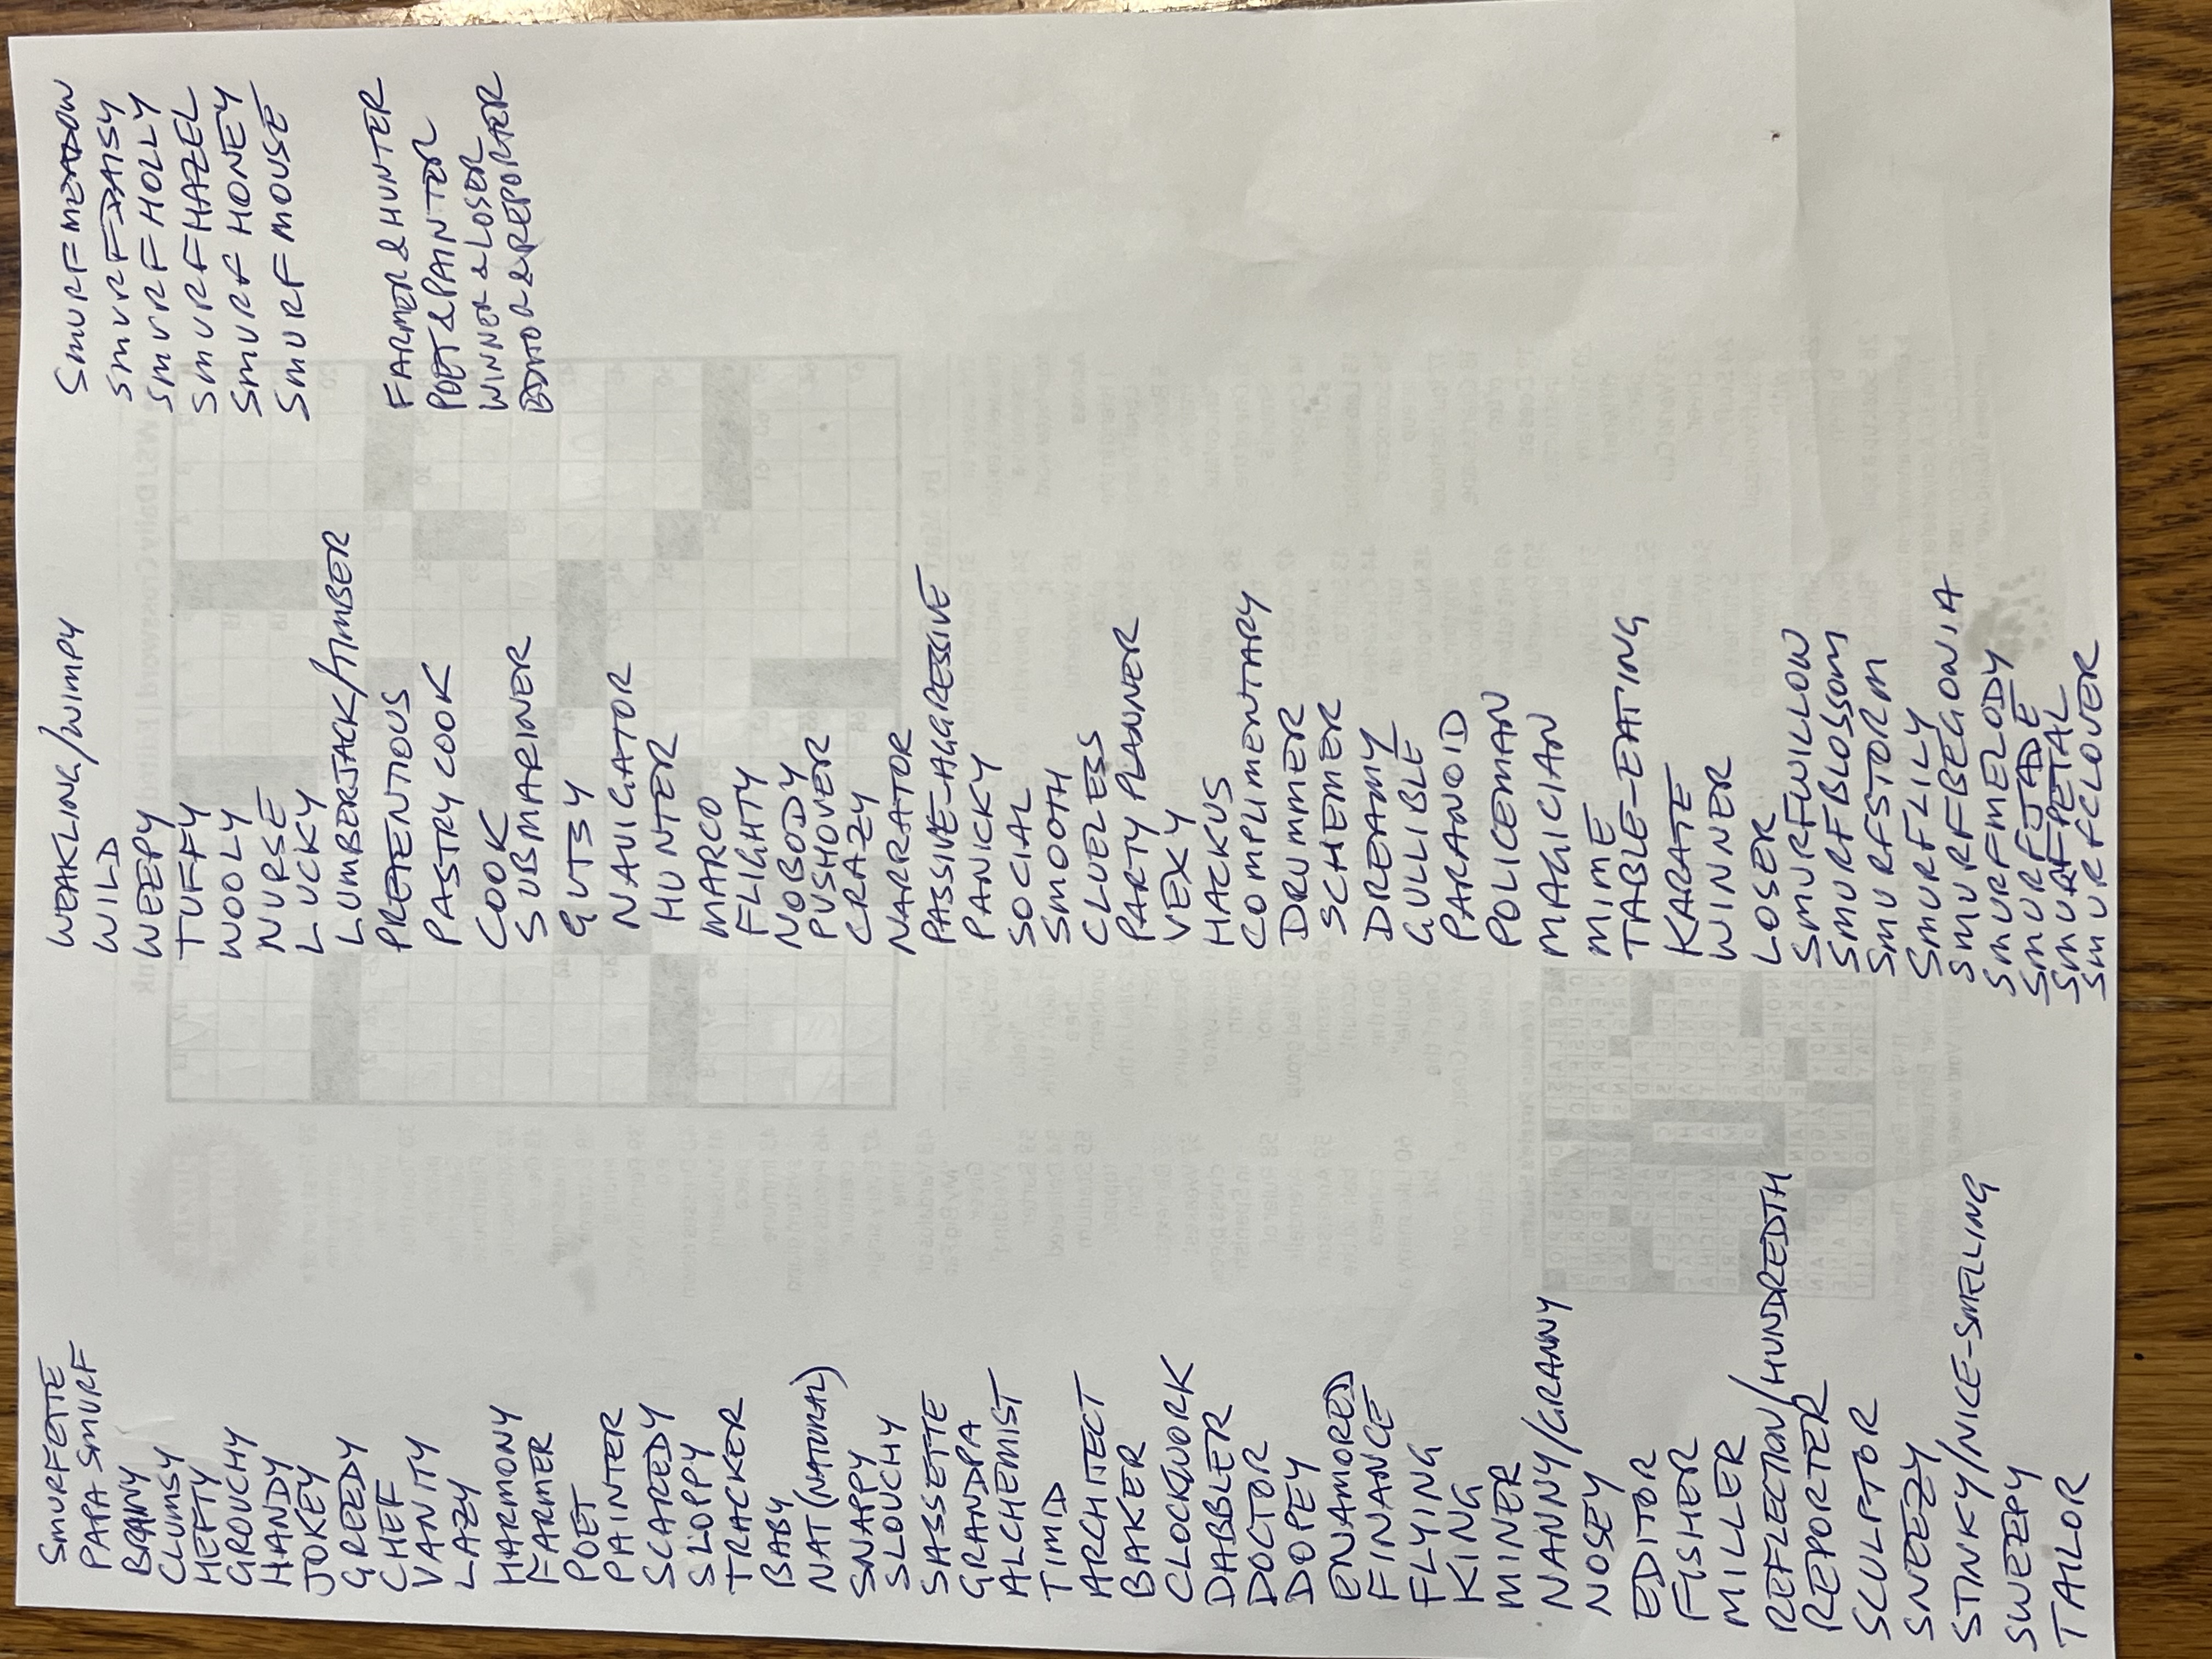 SMURFETTE
PAPA SMURF
BRAINY
CLUMSY
HEFTY
GROUCHY
HANDY
JOKEY
GREEDY
CHEF
VANITY
LAZY
HARMONY
FARMER
POET
PAINTER
SCAREDY
SLOPPY
TRACKER
BABY
NAT (NATURAL)
SNAPPY
SLOUCHY
SASSETTE
GRANDPA
ALCHEMIST
TIMID
ARCHITECT
BAKER
CLOCKWORK
DABBLER
DOCTOR
DOPEY
ENAMORED
FINANCE
FLYING
KING
MINER
NANNY/GRANNY
NOSEY
EDITOR
FISHER
MILLER
REFLECTION/HUNDREDTH
REPORTER
SCULPTOR
SNEEZY
STINKY/NICE-SMELLING
SWEEPY
TAILOR
WEAKLING/WIMPY
WILD
WEEPY
TUFFY
WOOLY
NURSE
LUCKY
LUMBERJACK/TIMBER
PRETENTIOUS
PASTRY COOK
COOK
SUBMARINER
GUTSY
NAVIGATOR
HUNTER
MARCO
FLIGHTY
NOBODY
PUSHOVER
CRAZY
NARRATOR
PASSIVE-AGGRESSIVE
PANICKY
SOCIAL
SMOOTH
CLUELESS
PARTY PLANNER
VEXY
HACKUS
COMPLIMENTARY
DRUMMER
SCHEMER
DREAMY
GULLIBLE
PARANOID
POLICEMAN
MAGICIAN
MIME
TABLE-EATING
KARATE
WINNER
LOSER
SMURFWILLOW
SMURFBLOSSOM
SMURFSTORM
SMURFLILY
SMURFBEGONIA
SMURFMELODY
SMURFJADE
SMURFPETAL
SMURFCLOVER
SMURFMEADOW
SMURFDAISY
SMURFHOLLY
SMURFHAZEL
SMURFHONEY
SMURFMOUSE
FARMER & HUNTER
POET & PAINTER
WINNER & LOSER
EDITOR & REPORTER